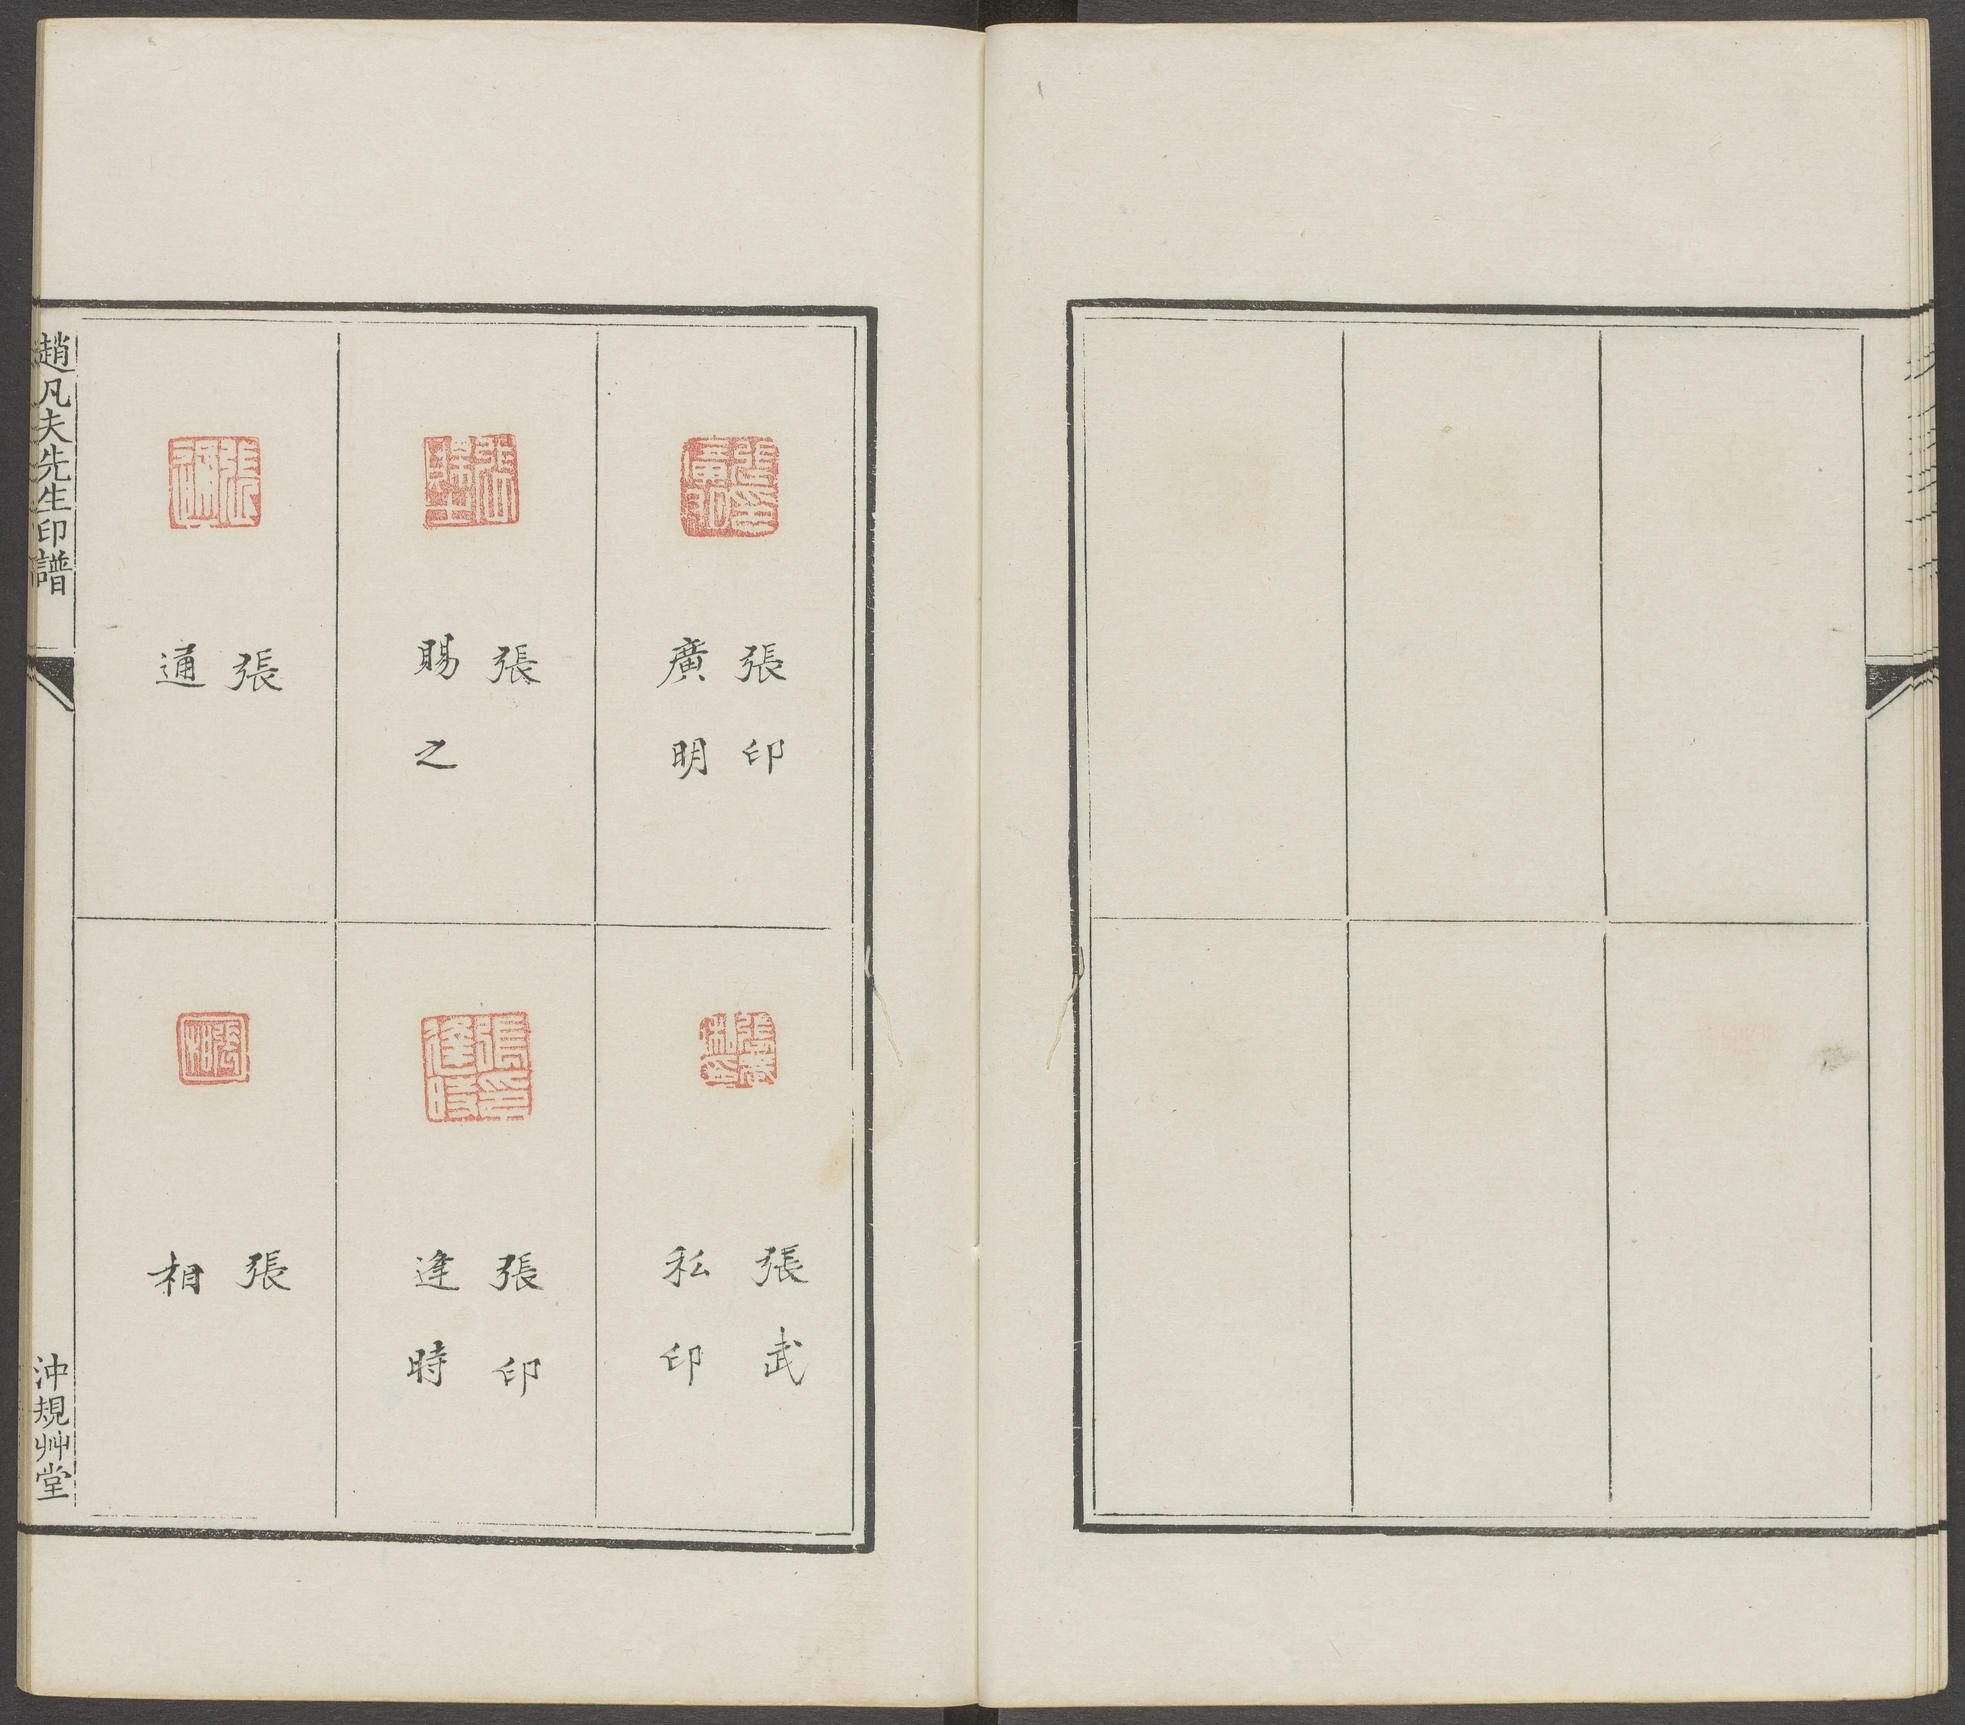 張印
廣明
張武
私印
張
賜之
張印
逢時
張
通
張
相
趙凡夫先生印譜
沖規艸堂